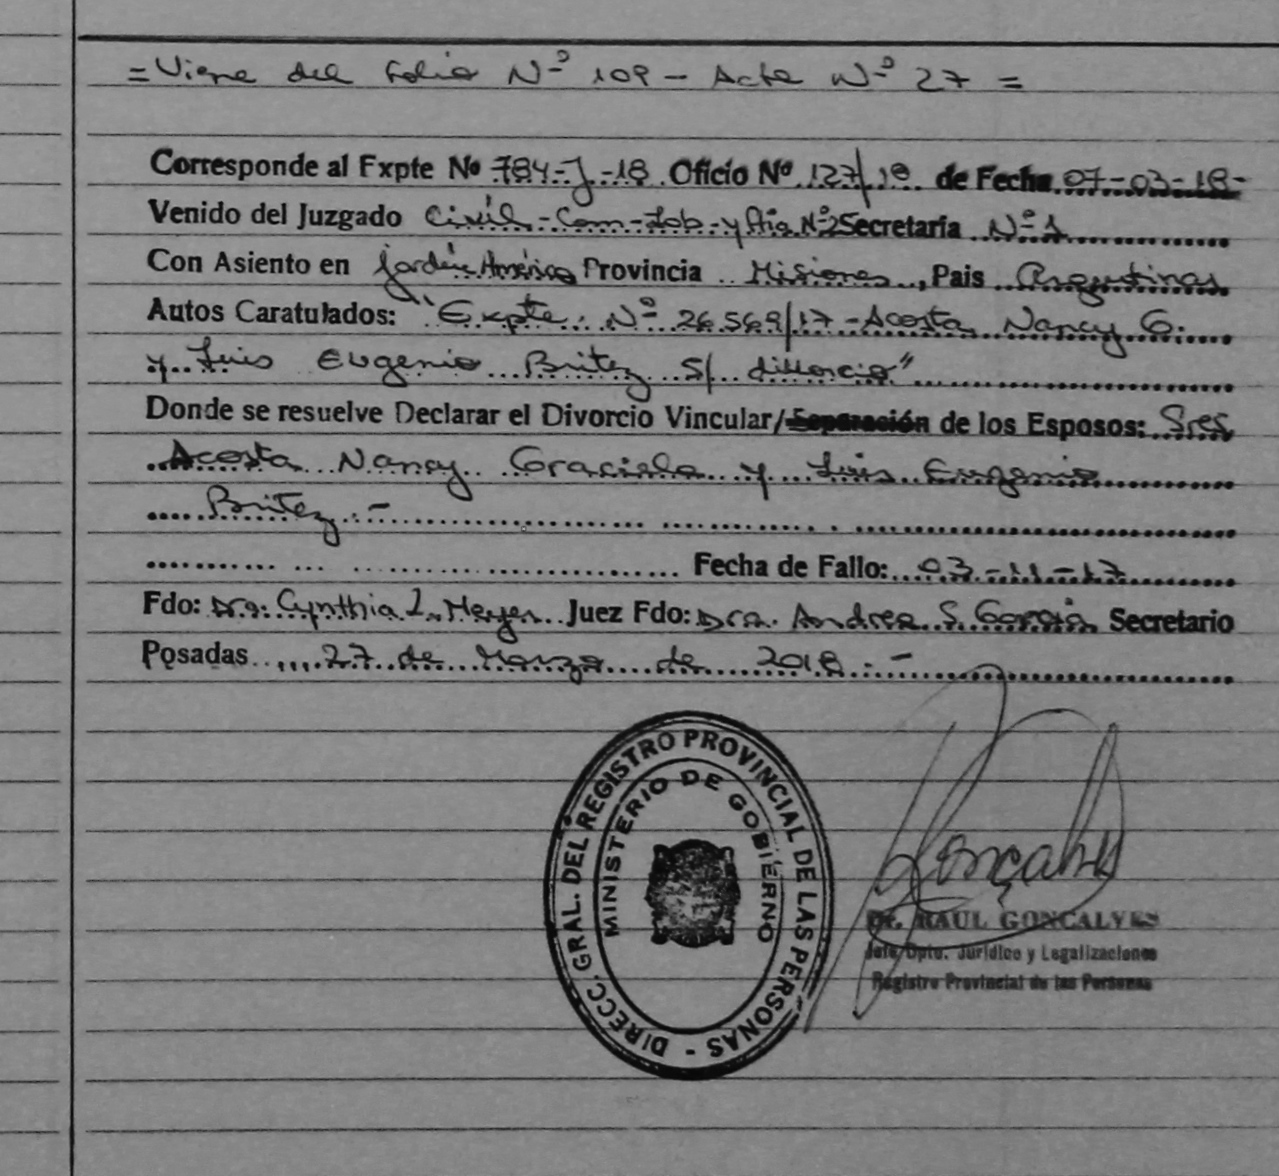 = Viene del Folio Nº 109 - Acta Nº 27 =
Corresponde al Expte Nº 784-J-18 Oficio Nº 127/18 de Fecha 07-03-18-
Venido del Juzgado Civil-Com-Lab-y Flia Nº2 Secretaría Nº 1
Con Asiento en Jardín América Provincia Misiones, Pais Argentina
Autos Caratulados: "Expte. Nº 26.569/17 - Acosta Nancy G.
y Luis Eugenio Britez S/ divorcio"
Donde se resuelve Declarar el Divorcio Vincular/Separación de los Esposos: Sres
Acosta Nancy Graciela y Luis Eugenio
Britez.-
Fecha de Fallo: 03-11-17
Fdo: Dra. Cynthia I. Meyer Juez Fdo: Dra. Andrea S. García Secretario
Posadas 27 de Marzo de 2018.-
DIRECC. GRAL. DEL REGISTRO PROVINCIAL DE LAS PERSONAS -
MINISTERIO DE GOBIERNO
Gonçalves
Dr. RAUL GONCALVES
Jefe Dpto. Jurídico y Legalizaciones
Registro Provincial de las Personas